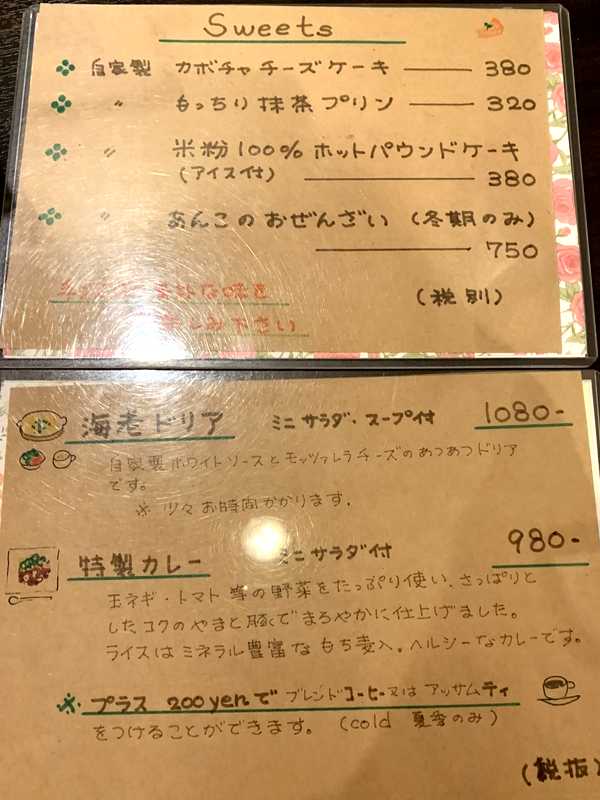 Sweets
自家製 カボチャチーズケーキ 380
〃 もっちり抹茶プリン 320
〃 米粉100% ホットパウンドケーキ
(アイス付) 380
〃 あんこのおぜんざい (冬期のみ)
750
な味を
(税別)
しみ下さい
海老ドリア ミニサラダ・スープ付 1080-
自家製ホワイトソースとモッツァレラチーズのあつあつドリア
です。
※ 少々お時間かかります。
特製カレー ミニサラダ付 980-
玉ネギ・トマト等の野菜をたっぷり使い、さっぱりと
したコクのやまと豚でまろやかに仕上げました。
ライスはミネラル豊富なもち麦入。ヘルシーなカレーです。
※ プラス 200yenで ブレンドコーヒー又は アッサムティ
をつけることができます。 (cold 夏季のみ)
(税抜)